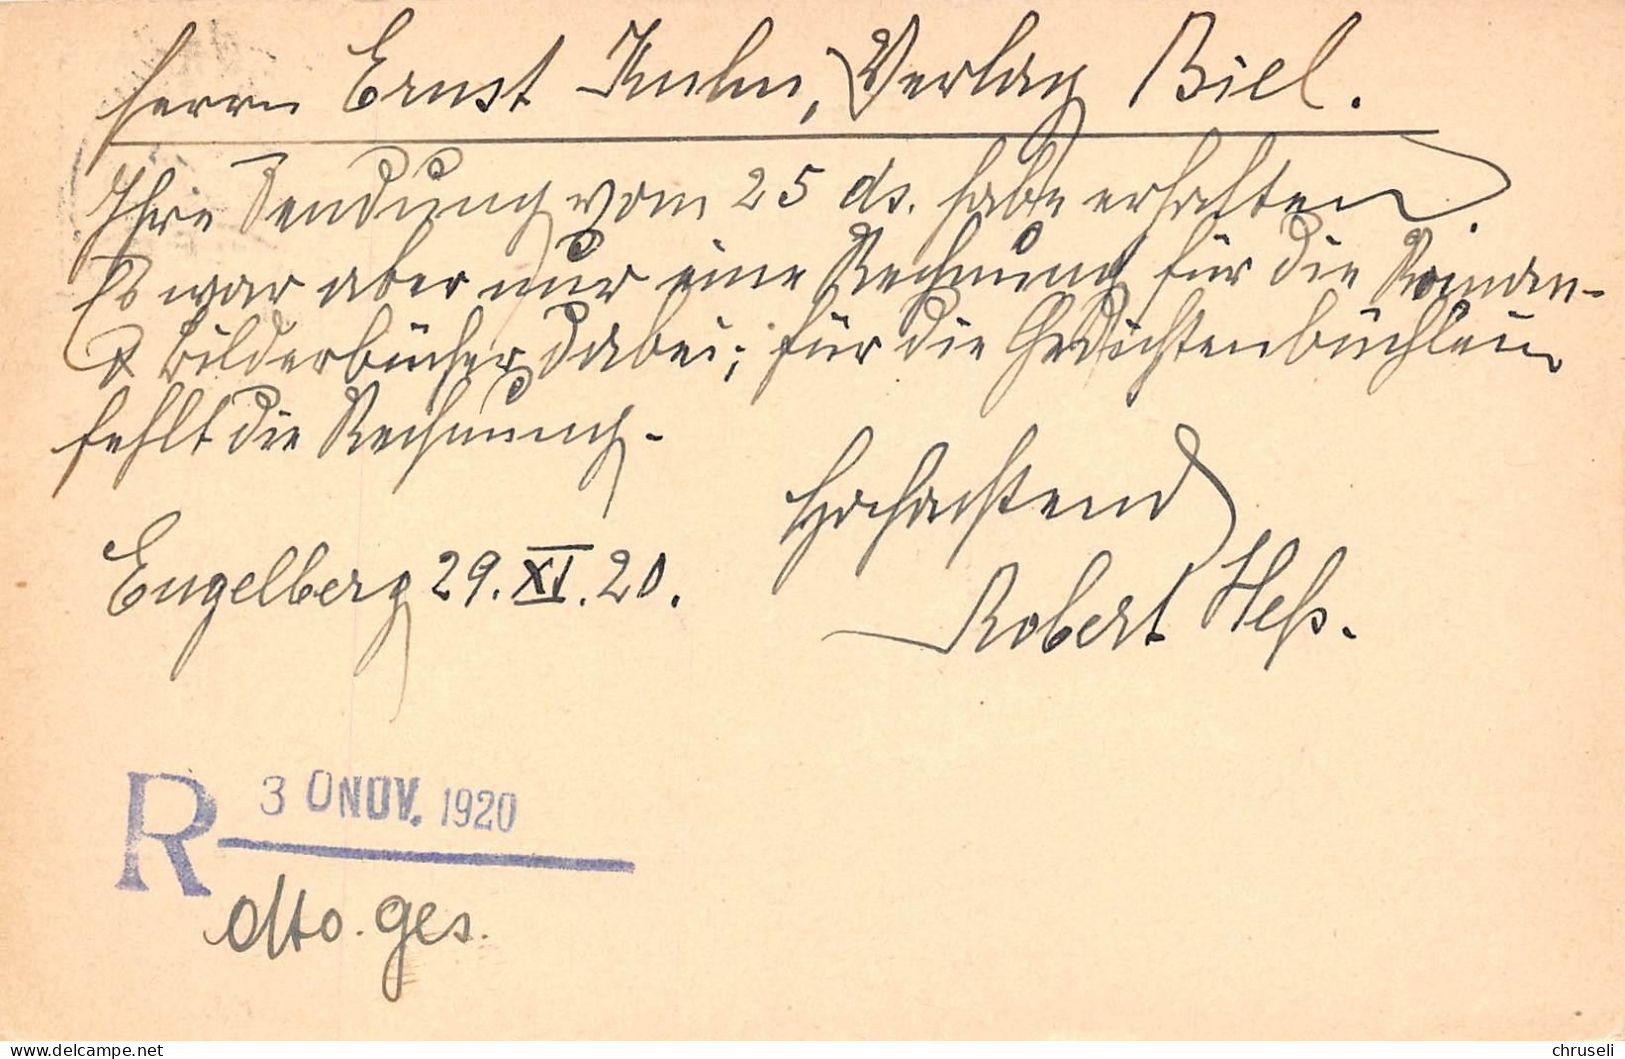 Herrn Ernst Kuhn, Verlag Biel.
Ihre Sendung vom 25 ds. habe erhalten.
Es war aber nur eine Rechnung für die Roman-
& Bilderbücher dabei; für die Gedichtenbüchlein
fehlt die Rechnung.
Hochachtend
Engelberg 29. XI. 20.
Robert Heß.
R 30 NOV. 1920
dtto. ges.
chruseli